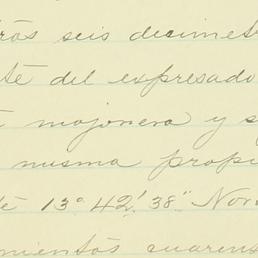 tros seis decimet
te del expresado
mojonera y s
misma propi
te 13° 42' 38" Nor
mientos cuaren